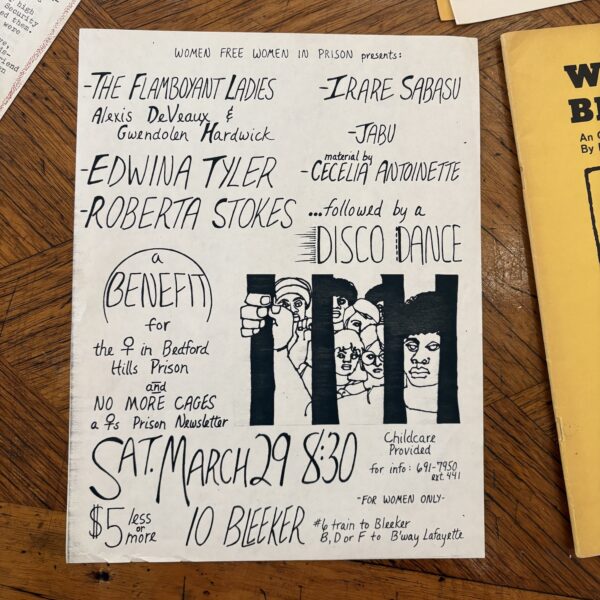 high
Security
ed them.
were
friend
WOMEN FREE WOMEN IN PRISON presents:
-THE FLAMBOYANT LADIES
Alexis DeVeaux &
Gwendolen Hardwick
-EDWINA TYLER
-ROBERTA STOKES
-IRARE SABASU
-JABU
material by
-CECELIA ANTOINETTE
...followed by a
DISCO DANCE
a
BENEFIT
for
the ♀ in Bedford
Hills Prison
and
NO MORE CAGES
a ♀s Prison Newsletter
SAT. MARCH 29 8:30
Childcare
Provided
for info: 691-7950
ext. 441
-FOR WOMEN ONLY-
$5/less
or
more
10 BLEEKER
#6 train to Bleeker
B, D or F to B'way Lafayette
W
BL
An
By